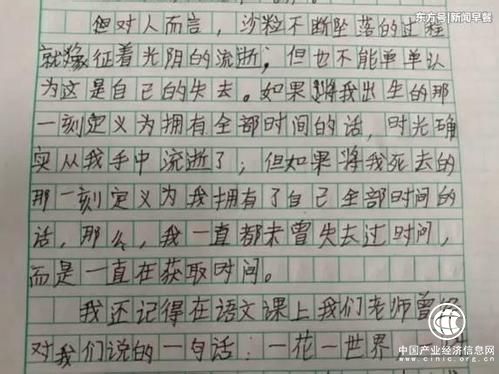 东方号|新闻早餐
但对人而言，沙粒不断坠落的过程
就象征着光阴的流逝，但也不能单单认
为这是自己的失去。如果将我出生的那
一刻定义为拥有全部时间的话，时光确
实从我手中流逝了；但如果将我死去的
那一刻定义为我拥有了自己全部时间的
话，那么，我一直都未曾失去过时间，
而是一直在获取时间。
我还记得在语文课上我们老师曾经
对我们说的一句话：一花一世界
中国产业经济信息网
www.cinic.org.cn